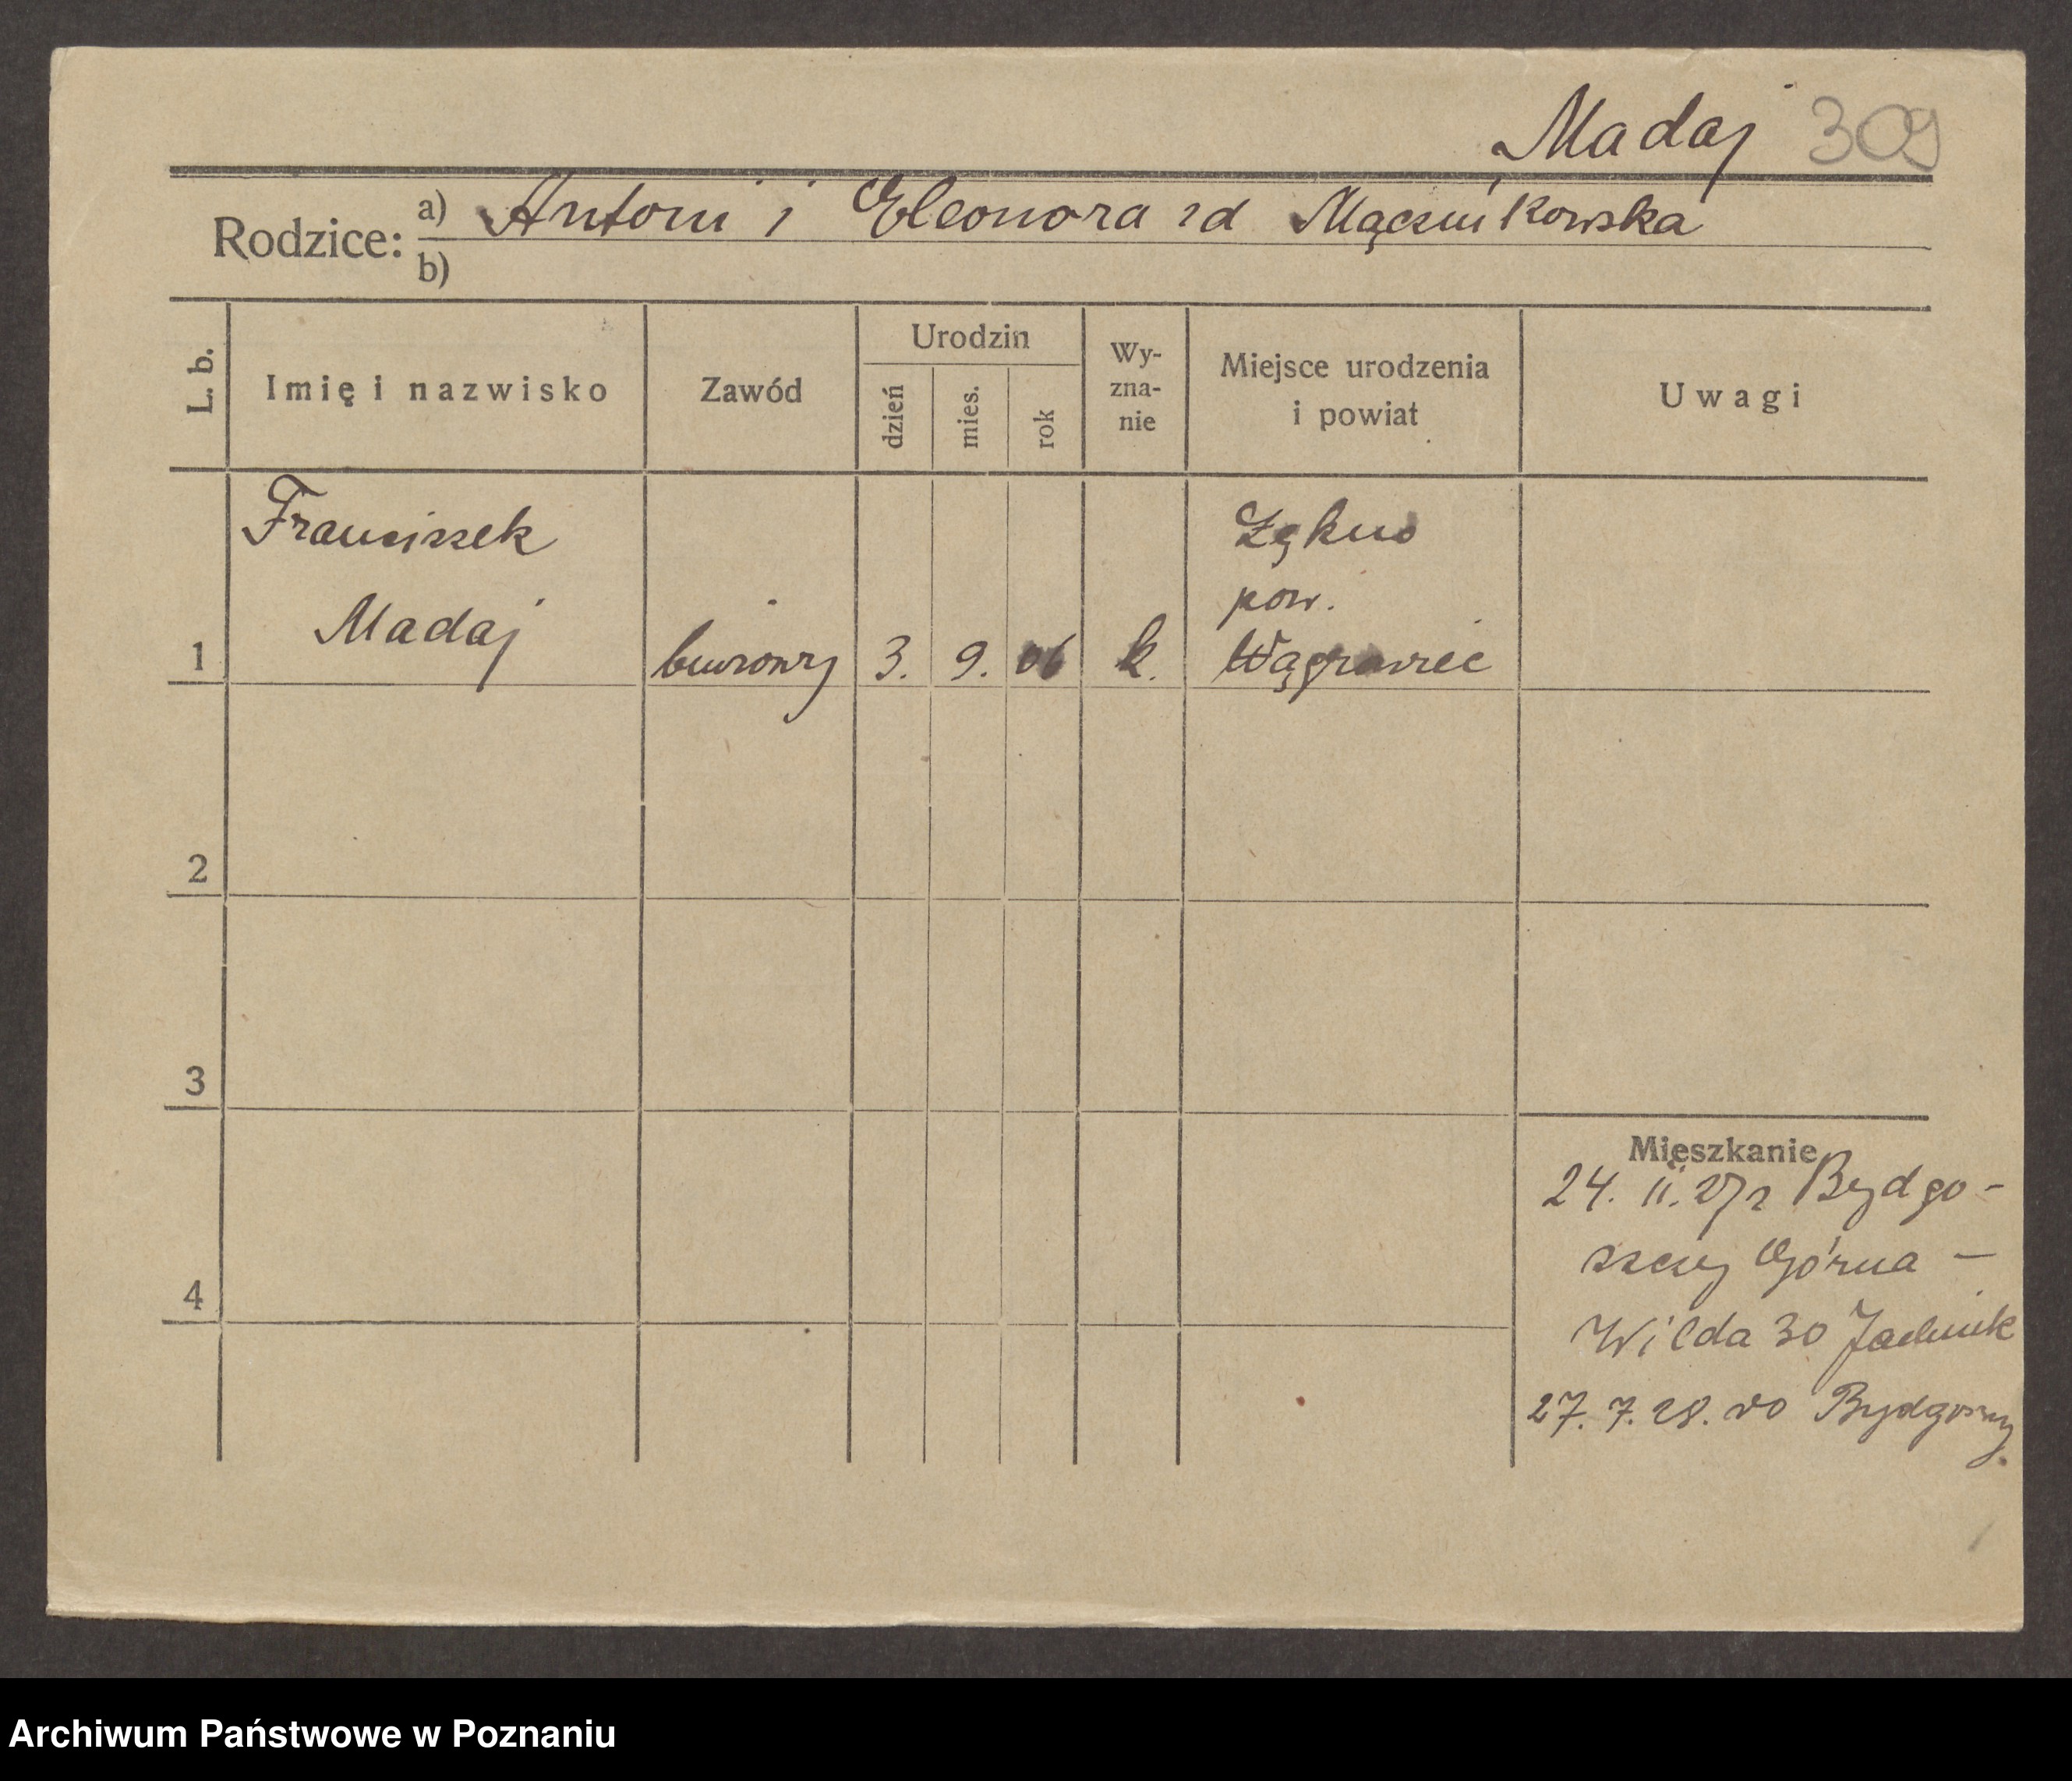 Madaj 309
Rodzice: a) Antoni i Eleonora zd Mącznikowska
b)
L. b.
Imię i nazwisko
Zawód
Urodzin
dzień
mies.
rok
Wy-
zna-
nie
Miejsce urodzenia
i powiat
Uwagi
1
Franciszek
Madaj
biurowy
3.
9.
06
k.
Łękno
pow.
Wągrowiec
2
3
4
Mieszkanie
24. 11. 27 z Bydgo-
szczy Górna -
Wilda 30
27. 7. 28. do Bydgoszczy.
Archiwum Państwowe w Poznaniu